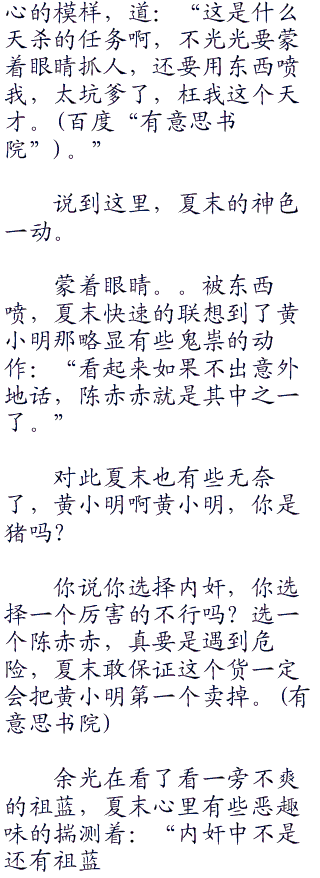 心的模样，道：“这是什么
天杀的任务啊，不光光要蒙
着眼睛抓人，还要用东西喷
我，太坑爹了，枉我这个天
才。(百度“有意思书
院”)。”
说到这里，夏末的神色
一动。
蒙着眼睛。。被东西
喷，夏末快速的联想到了黄
小明那略显有些鬼祟的动
作：“看起来如果不出意外
地话，陈赤赤就是其中之一
了。”
对此夏末也有些无奈
了，黄小明啊黄小明，你是
猪吗？
你说你选择内奸，你选
择一个厉害的不行吗？选一
个陈赤赤，真要是遇到危
险，夏末敢保证这个货一定
会把黄小明第一个卖掉。(有
意思书院)
余光在看了看一旁不爽
的祖蓝，夏末心里有些恶趣
味的揣测着：“内奸中不是
还有祖蓝